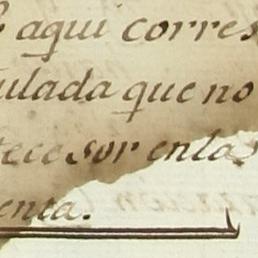 aqui corres
ulada que no
tecesor enlas
enta.